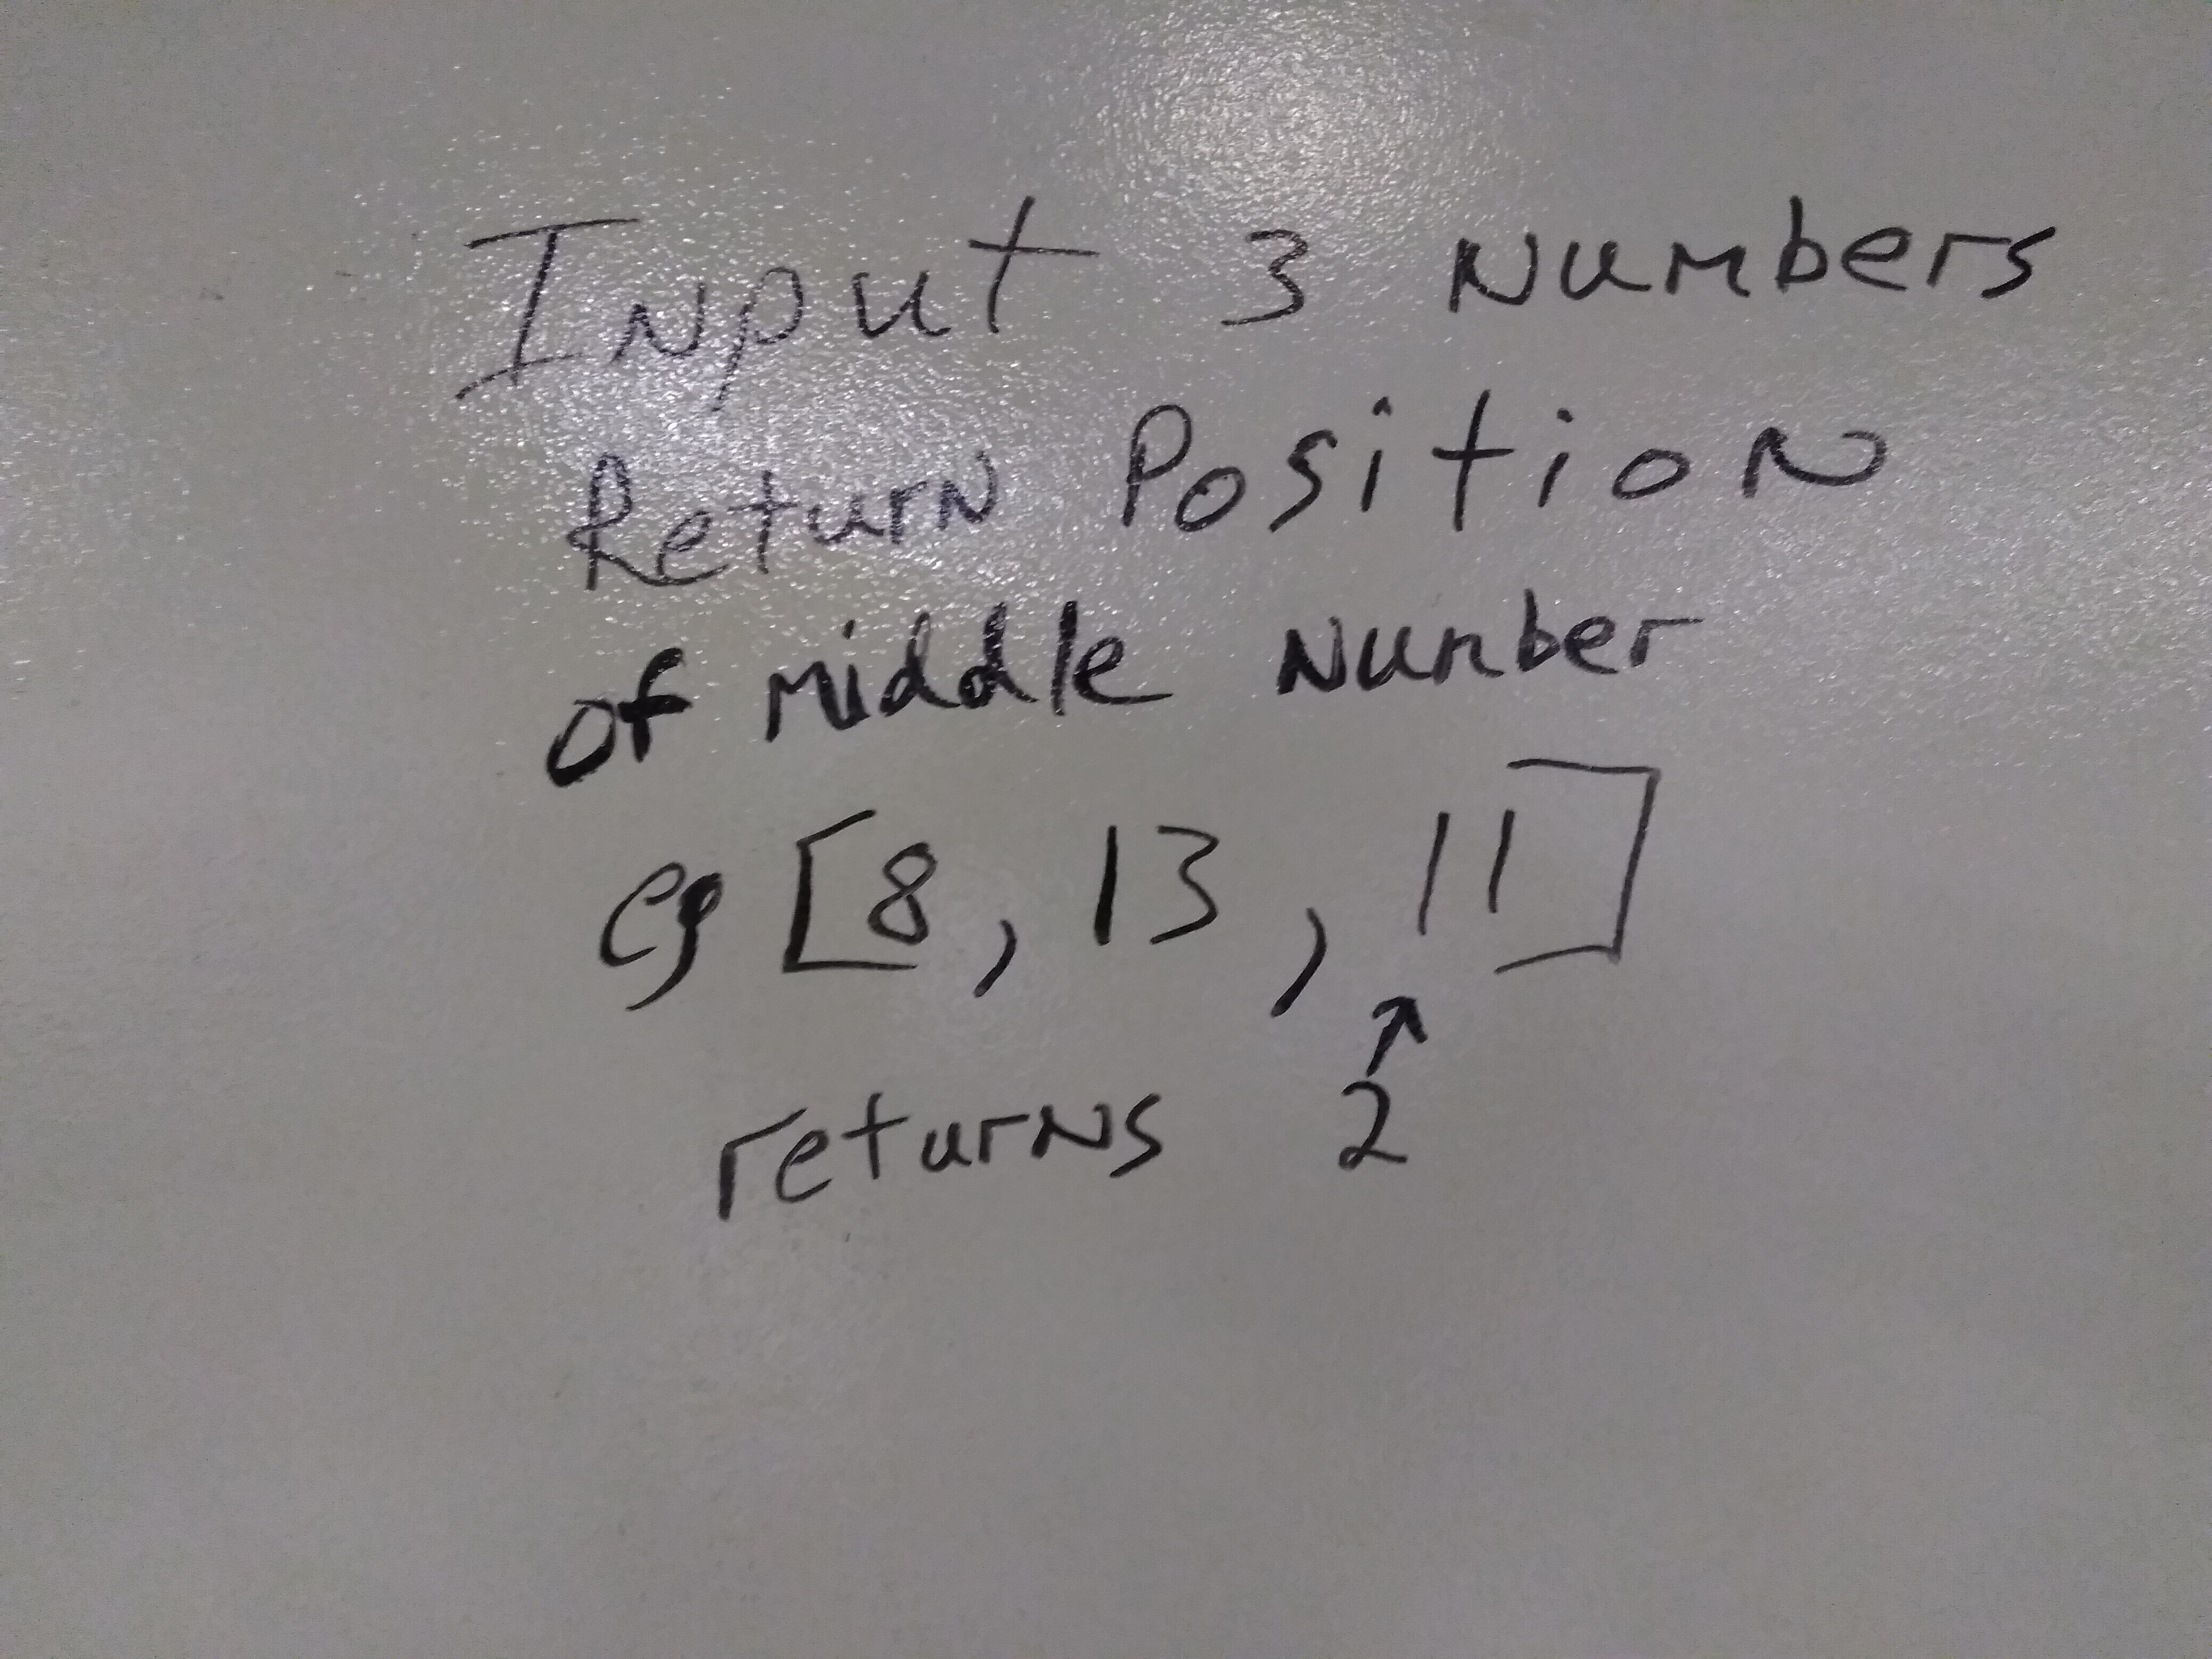 Input 3 Numbers
Return Position
of middle Number
eg [8, 13, 11]
↑
returns 2